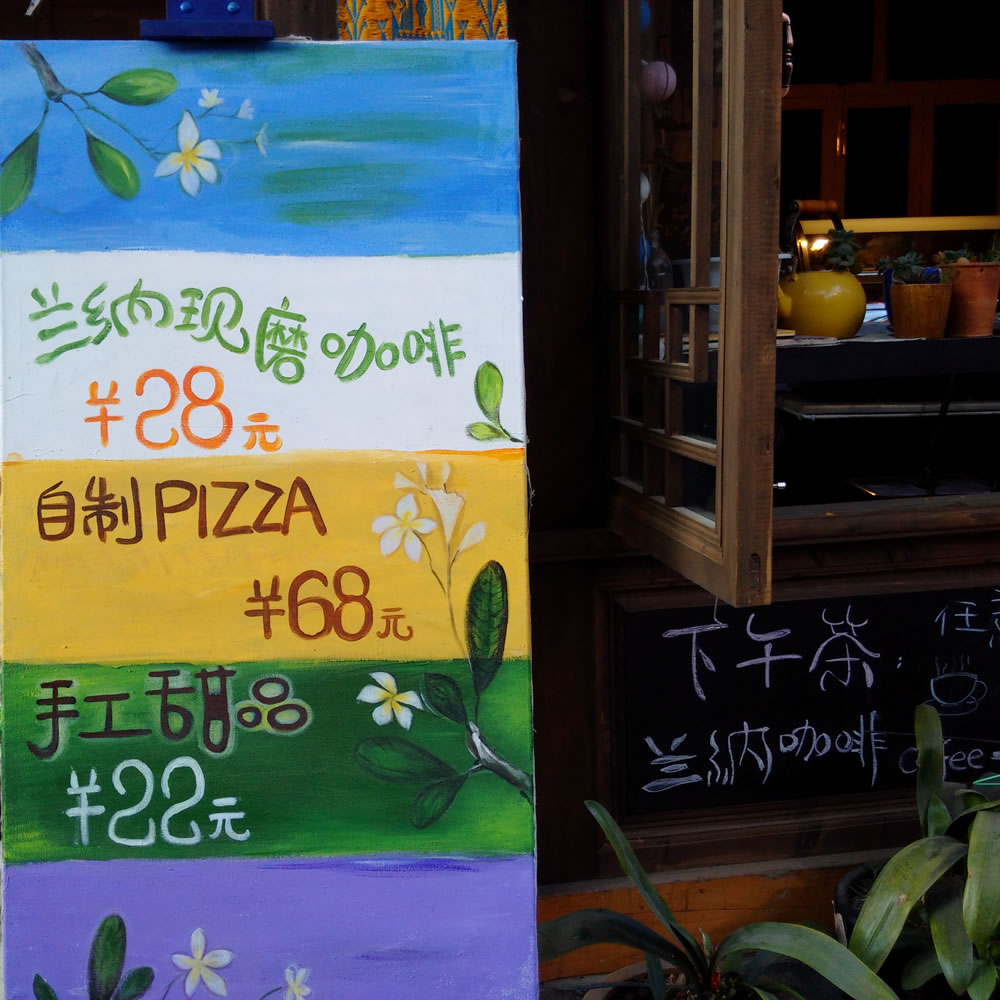 兰纳现磨咖啡
¥28元
自制PIZZA
¥68元
手工甜品
¥22元
下午茶:
任意
兰纳咖啡
coffee